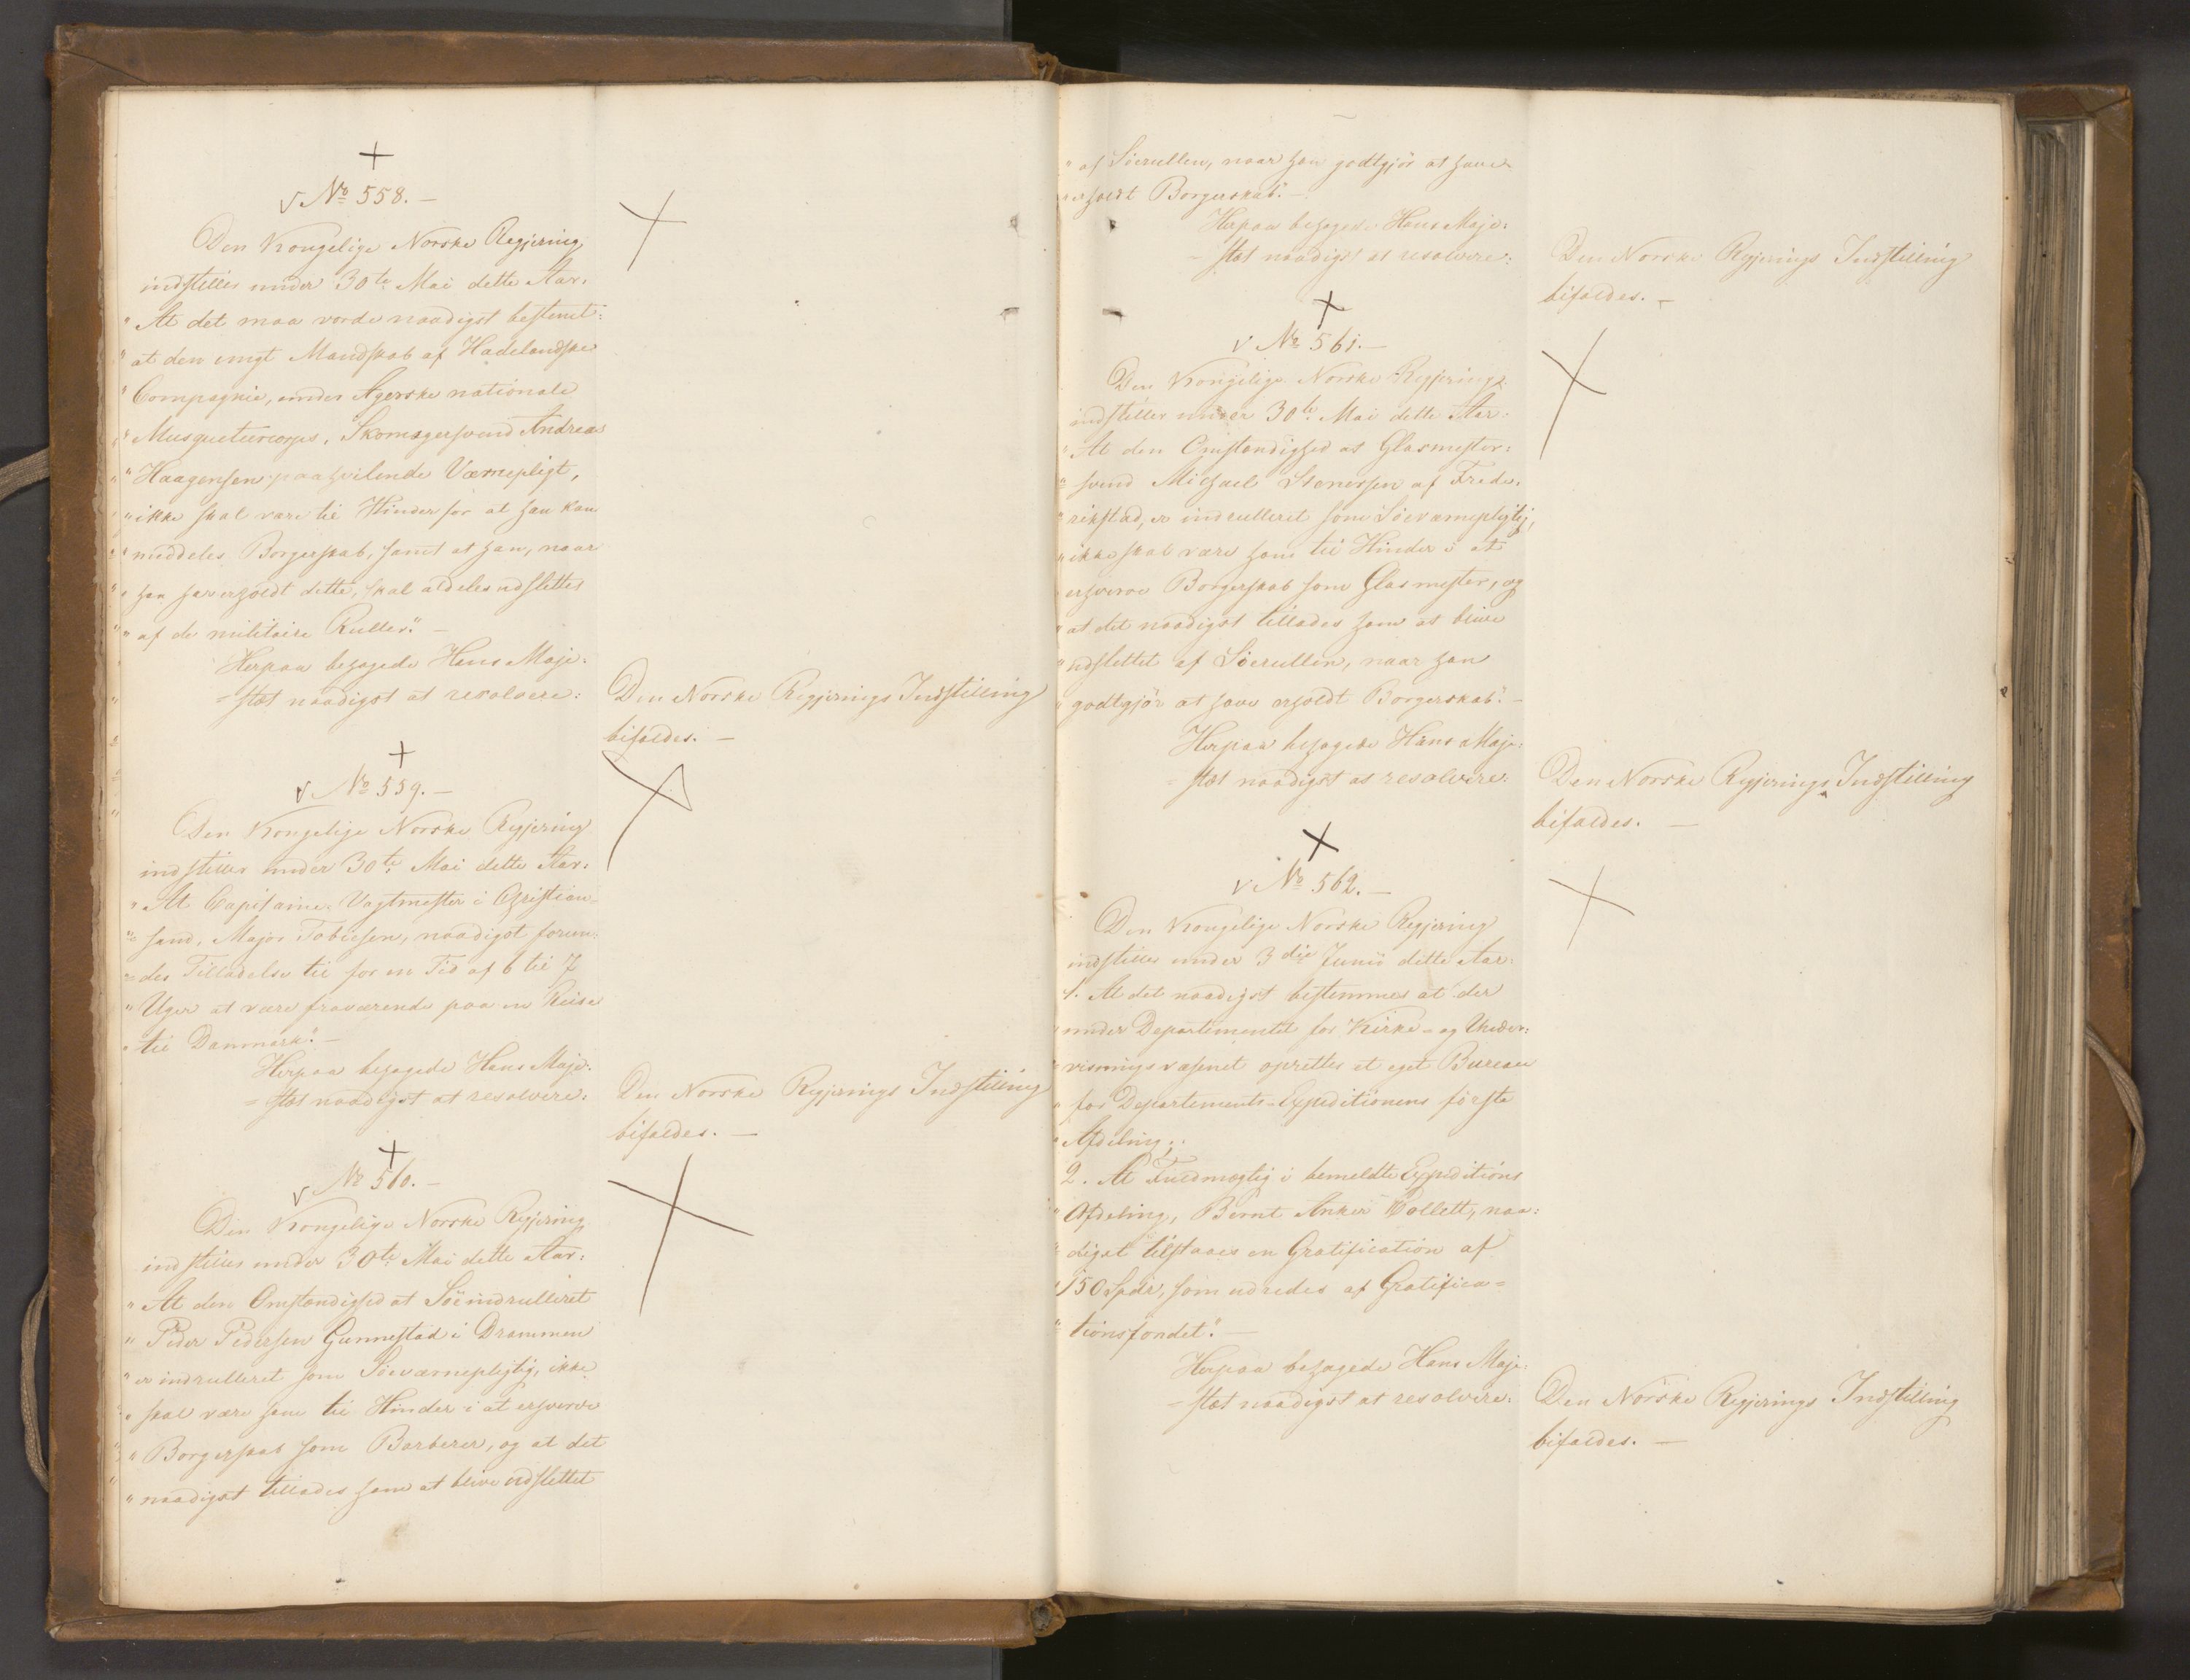 № 558.—
Den Kongelige Norske Regjering
indstiller under 30te Mai dette Aar:
"At det maa vorde naadigst bestemt:
"at den ungt Mandskab af Hadelandske
"Compagnie, under Agerske nationale
"Musqueteercorps, Skomagersvend Andreas
"Haagensen paahvilende Værnepligt,
"ikke skal være til Hinder for at han kan
"meddeles Borgerskab, samt at han, naar
"han har erholdt dette, skal aldeles udslettes
"af de militaire Ruller." —
Herpaa behagede Hans Maje-
=stæt naadigst at resolvere:
Den Norske Regjerings Indstilling
bifaldes. —
№ 559. —
Den Kongelige Norske Regjering
indstiller under 30te Mai dette Aar:
"At Capitaine-Vagtmester i Christian-
"sand, Major Tobiesen, naadigst forun-
"des Tilladelse til for en Tid af 6 til 7
"Uger at være fraværende paa en Reise
"til Danmark." —
Herpaa behagede Hans Maje-
=stæt naadigst at resolvere:
Den Norske Regjerings Indstilling
bifaldes. —
№ 560. —
Den Kongelige Norske Regjering
indstiller under 30te Mai dette Aar:
"At den Omstændighed at Söeindrulleret
"Peder Pedersen Gunnestad i Drammen
"er indrulleret som Söeværnepligtig, ikke
"skal være ham til Hinder i at erhverve
"Borgerskab som Barberer, og at det
"naadigst tillades ham at blive udslettet
"af Söerullen, naar han godtgjör at have
"erholdt Borgerskab." —
Herpaa behagede Hans Maje-
=stæt naadigst at resolvere:
Den Norske Regjerings Indstilling
bifaldes. —
№ 561. —
Den Kongelige Norske Regjering
indstiller under 30te Mai dette Aar:
"At den Omstændighed at Glasmester-
"svend Michael Stenersen af Frede-
"rikstad, er indrulleret som Söeværnepligtig,
"ikke skal være ham til Hinder i at
"erhverve Borgerskab som Glasmester, og
"at det naadigst tillades ham at blive
"udslettet af Söerullen, naar han
"godtgjör at have erholdt Borgerskab." —
Herpaa behagede Hans Maje-
=stæt naadigst at resolvere:
Den Norske Regjerings Indstilling
bifaldes. —
№ 562. —
Den Kongelige Norske Regjering
indstiller under 3die Junii dette Aar:
"1. At det naadigst bestemmes at der
"under Departementet for Kirke- og Under-
"visningsvæsenet oprettes et eget Bureau
"for Departements-Expeditionens förste
"Afdeling;
"2. At Fuldmægtig i bemeldte Expeditions
"Afdeling, Bernt Anker Collett, naa-
"digst tilstaaes en Gratification af
"150 Spdr, som udredes af Gratifica-
"tionsfondet." —
Herpaa behagede Hans Maje-
=stæt naadigst at resolvere:
Den Norske Regjerings Indstilling
bifaldes. —